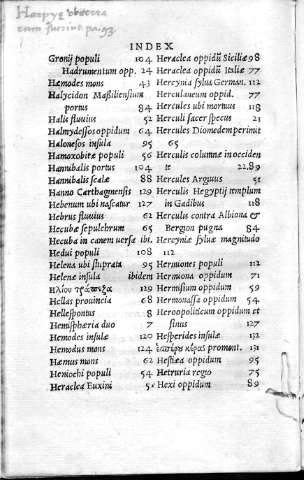 INDEX
Gronij populi 104
Hadrumentum opp. 24
Hæmodes mons 43
Halycidon Maßiliensium
portus 84
Halis fluuius 52
Halmydessos oppidum 64
Halonesos insula 95
Hamaxobitæ populi 56
Hannibalis portus 104
Hannibalis scalæ 88
Hanno Carthaginensis 129
Hebenum ubi nascatur 127
Hebrus fluuius 62
Hecubæ sepulchrum 65
Hecuba in canem uersa ibi.
Hedui populi 108
Helena ubi stuprata 95
Helenæ insula ibidem
Ἡλίου τράπεζα 129
Hellas prouincia 68
Hellespontus 8
Hemispheria duo 7
Hemodes insulæ 120
Hemodus mons 124
Hæmus mons 62
Heniochi populi 54
Heraclea Euxini 51
Heraclea oppidū Siciliæ 98
Heraclea oppidū Italiæ 77
Hercynia sylua German. 112
Herculaneum oppid. 77
Hercules ubi mortuus 118
Herculi sacer specus 21
Hercules Diomedem perimit
65
Herculis columnæ in occiden
te 22.89
Hercules Arguus 51
Herculis Aegyptij templum
in Gadibus 118
Herculis contra Albiona &
Bergion pugna 84
Hercyniæ syluæ magnitudo
112
Hermones populi 112
Hermiona oppidum 71
Hermisium oppidum 59
Hermonassa oppidum 54
Heroopoliticum oppidum et
sinus 127
Hesperides insulæ 132
ἑσπέρου κέρας promont. 131
Hestiæa oppidum 95
Hetruria regio 75
Hexi oppidum 89